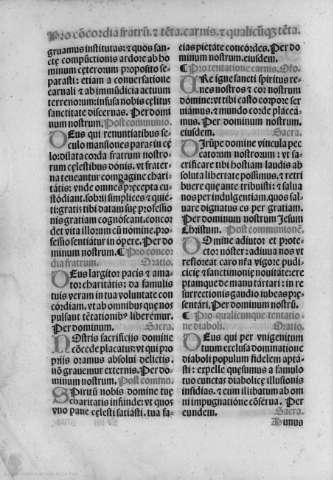 Pro cōcordia fratrū. ⁊ tēta. carnis. ⁊ qualicūqꝫ tēta.
gruamus institutas: ⁊ quos san-
cte compūctionis ardore ab ho
minum ceterorum proposito se
parasti: etiam a conuersatione
carnali ⁊ ab immūdicia actuum
terrenorum: infusa nobis celitus
sanctitate discernas. Per domi
num nostrum. Post communio.
Deus qui renunciatibus se
culo mansiones paras in ce
lo: dilata corda fratrum nostro
rum celestibus donis. vt frater
na teneantur compagine charita
tis: vnde omnes precepta cu
stodiant. sobrij simplices ⁊ quie
ti: gratis tibi datam suę professio
nis gratiam cognoscant. concor
det vita illorum cū nomine. pro
fessio sentiatur in opere. Per do
minum nostrum. Pro concor
dia fratrum. Oratio.
Deus largitor pacis ⁊ ama
tor charitatis: da famulis
tuis veram in tua voluntate con
cordiam. vt ab omnibus que nos
pulsant tētationibꝰ liberemur.
Per dominum. Sacra.
Nostris sacrificijs domine
cōcede placatus: vt qui pro
prijs oramus absolui delictis.
nō grauemur externis. Per do-
minum nostrum. Post commo.
Spiritū nobis domine tuę
charitatis infūde: vt quos
vno pane celesti satiasti. tua fa-
cias pietate concordes. Per do
minum nostrum. eiusdem.
Pro tentatione carnis. Oro.
Ure igne sancti spiritus re-
nes nostros ⁊ cor nostrum
domine: vt tibi casto corpore ser
uiamus. ⁊ mundo corde placea-
mus. Per dominum nostrum.
eiusdem. Sacra.
Dirūpe domine vincula pec
catorum nostrorum: vt sa-
crificare tibi hostiam laudis ab
soluta libertate possimus. ⁊ retri
buere que ante tribuisti: ⁊ salua
nos per indulgentiam. quos sal-
uare dignatus es per gratiam.
Per dominum nostrum Iesum
Christum. Post communionē.
Domine adiutor et prote-
ctor noster: adiuua nos vt
refloreat caro nr̄a vigore pudi-
cicię ⁊ sanctimonię nouitate: ere
ptamque de manu tartari: in re
surrectionis gaudio iubeas pre-
sentari. Per dominum nostrū.
Pro qualicunque tentatio
ne diaboli. Oratio.
Deus qui per vnigenitum
tuum exclusa dominatione
diaboli populum fidelem apta-
sti: expelle quesumus a famulo
tuo cunctas diabolice illusionis
insidias. ⁊ eum illibatum ab om
ni impugnatione cōserua. Per
eundem. Sacra.
Munus